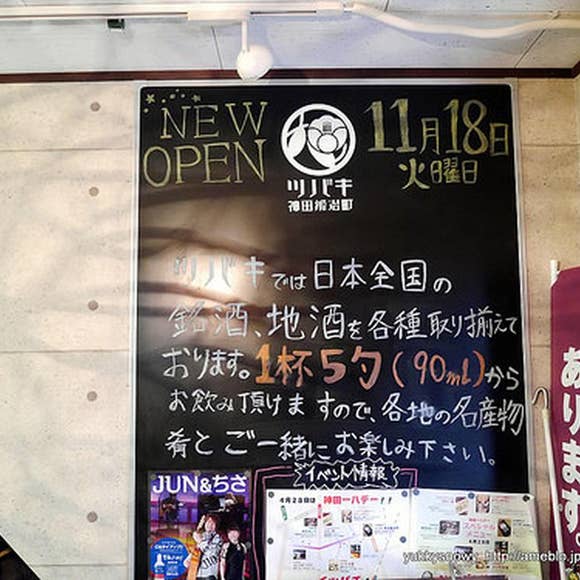 NEW
OPEN
ツバキ
神田鍛冶町
11月18日
火曜日
ツバキでは日本全国の
銘酒、地酒を各種取り揃えて
おります。1杯5勺(90mL)から
お飲み頂けますので、各地の名産物
肴とご一緒にお楽しみ下さい。
イベント情報
JUN&ちさ
4月28日は
神田一八デー!!
あります。
yukkysnowy http://ameblo.jp